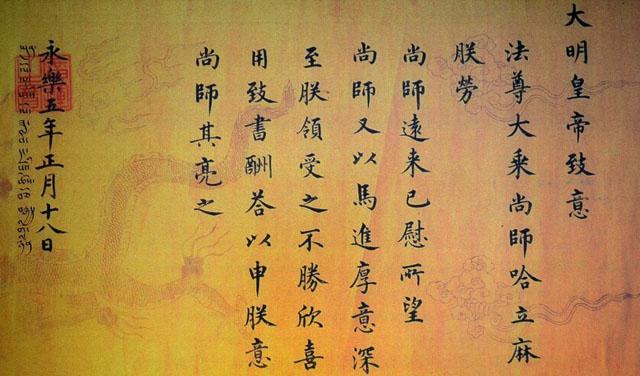 大明皇帝致意
法尊大乘尚師哈立麻
朕勞
尚師遠来已慰所望
尚師又以馬進厚意深
至朕領受之不勝欣喜
用致書酬荅以申朕意
尚師其亮之
永樂五年正月十八日